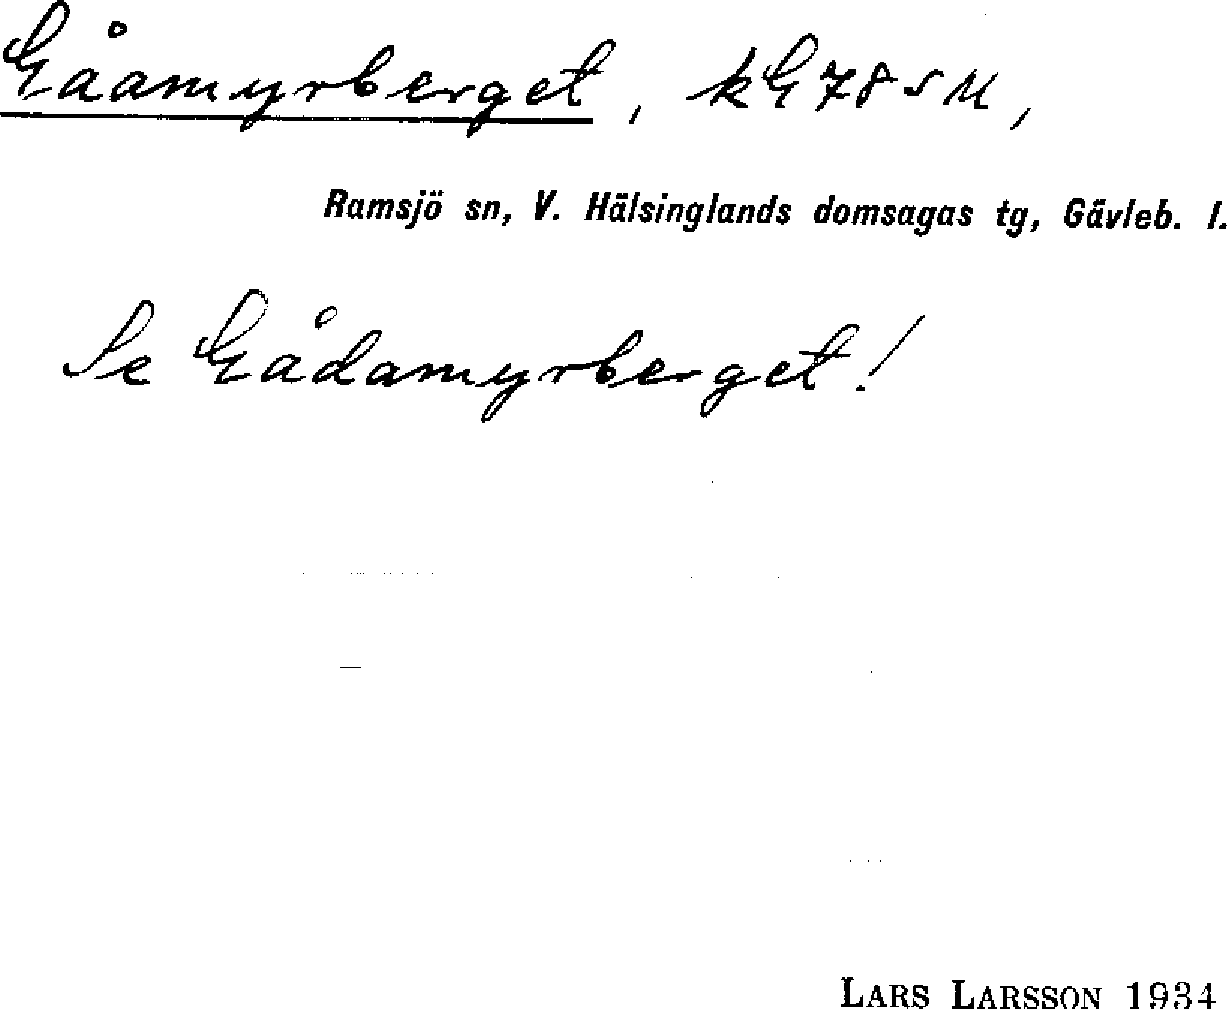 Gåamyrberget, kG78SM,
Ramsjö sn, V. Hälsinglands domsagas tg, Gävleb. l.
Se Gådamyrberget!
LARS LARSSON 1934